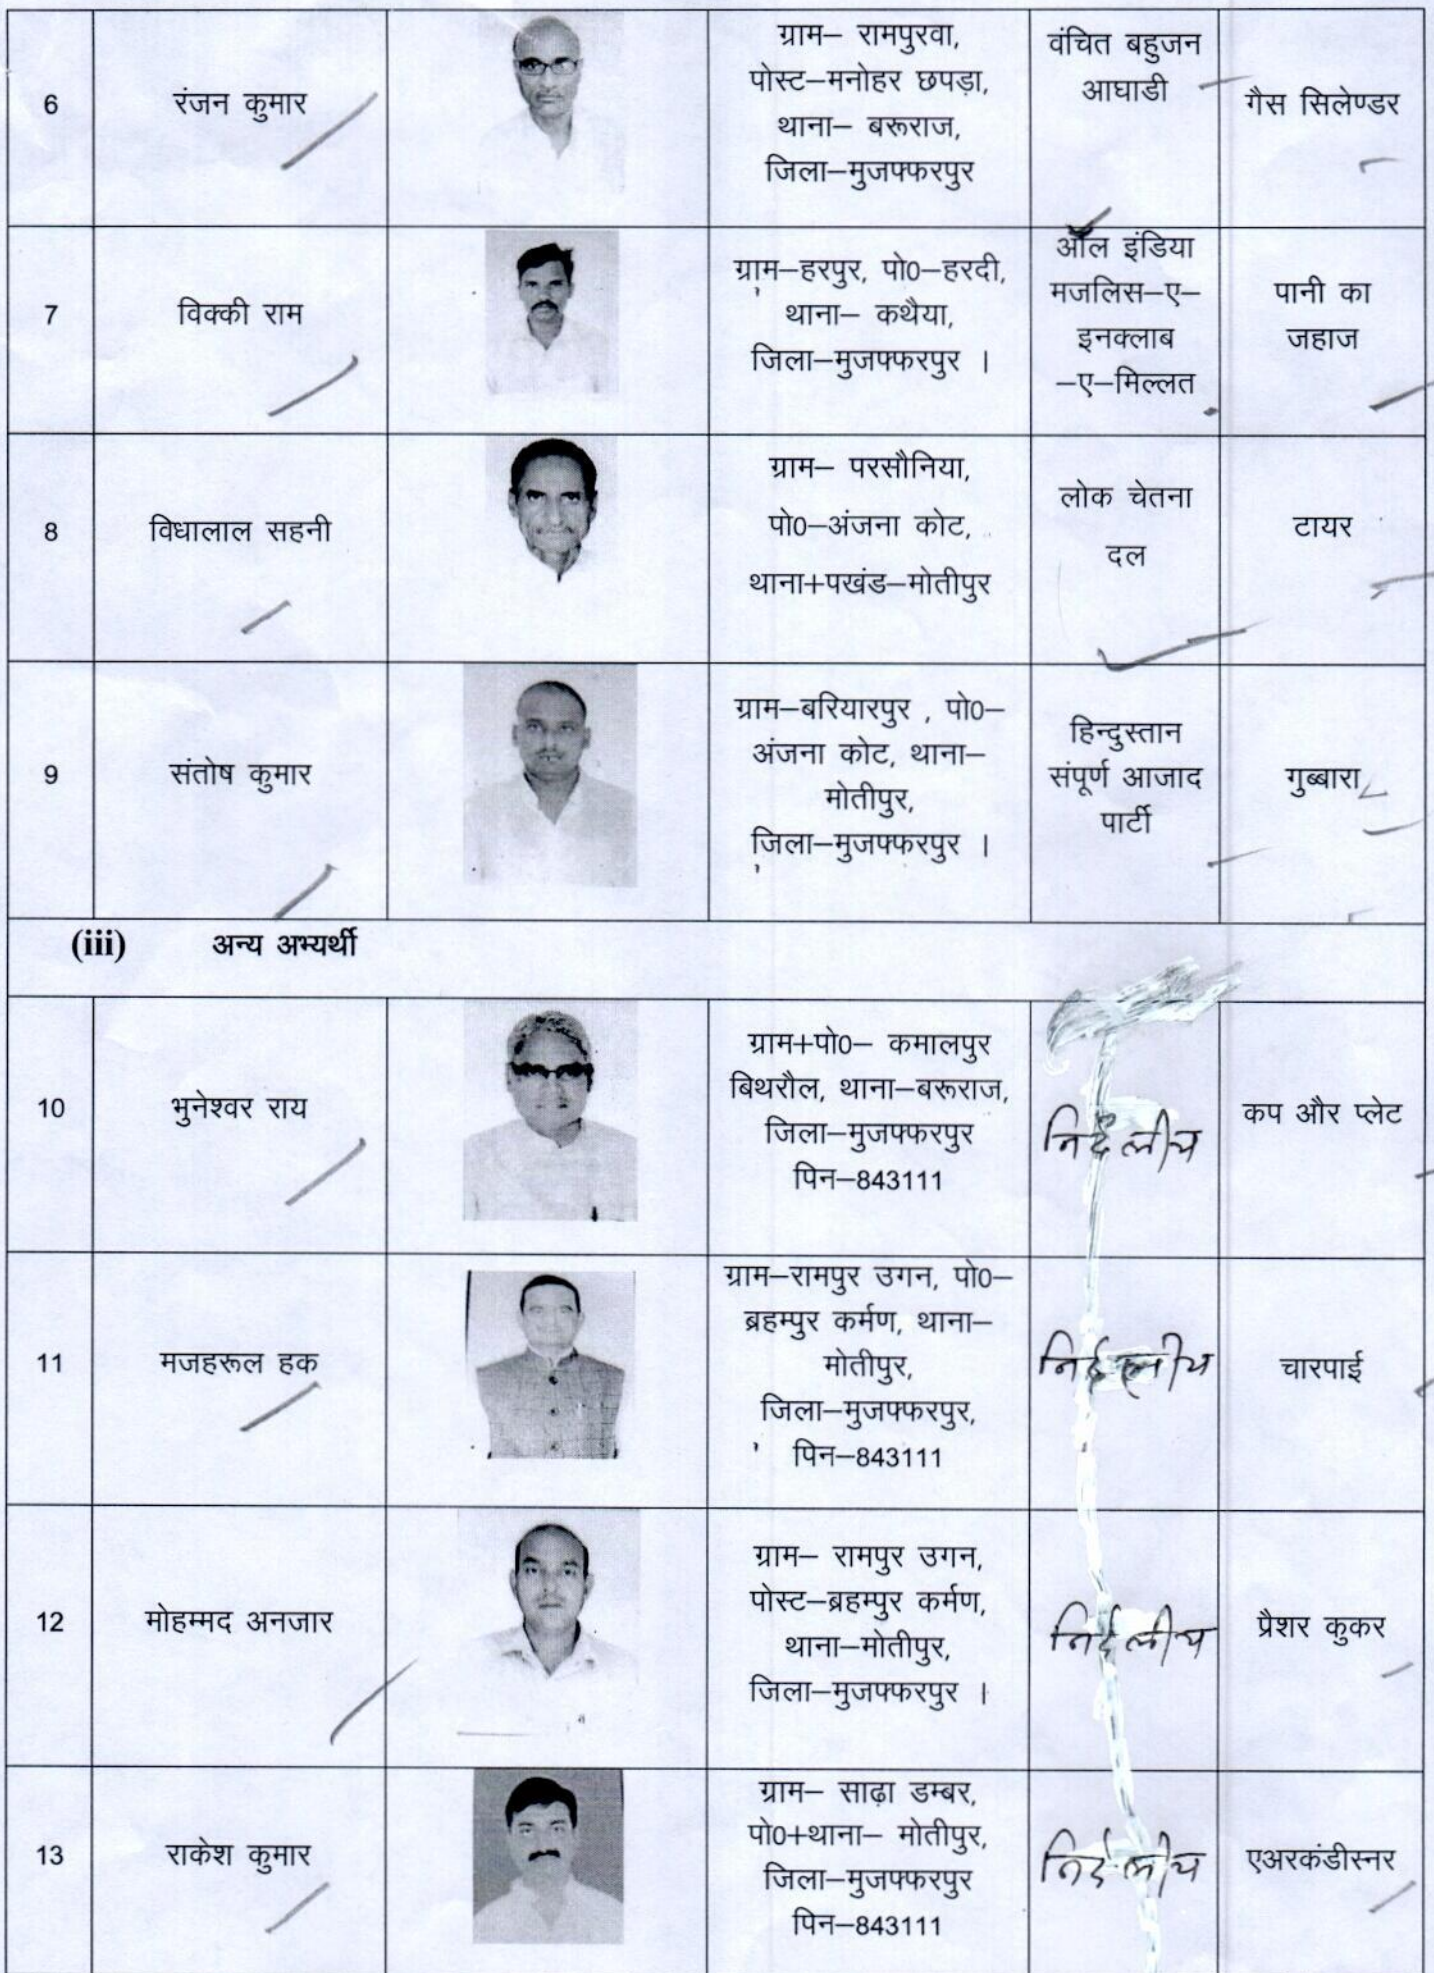 6
रंजन कुमार
ग्राम– रामपुरवा,
पोस्ट–मनोहर छपड़ा,
थाना– बरूराज,
जिला–मुजफ्फरपुर
वंचित बहुजन
आघाडी
गैस सिलेण्डर
7
विक्की राम
ग्राम–हरपुर, पो0–हरदी,
थाना– कथैया,
जिला–मुजफ्फरपुर ।
ऑल इंडिया
मजलिस–ए–
इनक्लाब
–ए–मिल्लत
पानी का
जहाज
8
विधालाल सहनी
ग्राम– परसौनिया,
पो0–अंजना कोट,
थाना+पखंड–मोतीपुर
लोक चेतना
दल
टायर
9
संतोष कुमार
ग्राम–बरियारपुर , पो0–
अंजना कोट, थाना–
मोतीपुर,
जिला–मुजफ्फरपुर ।
हिन्दुस्तान
संपूर्ण आजाद
पार्टी
गुब्बारा
(iii) अन्य अभ्यर्थी
10
भुनेश्वर राय
ग्राम+पो0– कमालपुर
बिथरौल, थाना–बरूराज,
जिला–मुजफ्फरपुर
पिन–843111
निर्दलीय
कप और प्लेट
11
मजहरूल हक
ग्राम–रामपुर उगन, पो0–
ब्रहम्पुर कर्मण, थाना–
मोतीपुर,
जिला–मुजफ्फरपुर,
पिन–843111
निर्दलीय
चारपाई
12
मोहम्मद अनजार
ग्राम– रामपुर उगन,
पोस्ट–ब्रहम्पुर कर्मण,
थाना–मोतीपुर,
जिला–मुजफ्फरपुर ।
निर्दलीय
प्रैशर कुकर
13
राकेश कुमार
ग्राम– साढ़ा डम्बर,
पो0+थाना– मोतीपुर,
जिला–मुजफ्फरपुर
पिन–843111
निर्दलीय
एअरकंडीस्नर